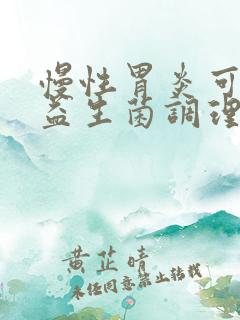 慢性胃炎可
益生菌調理
黄芷晴
未任同意禁止转载